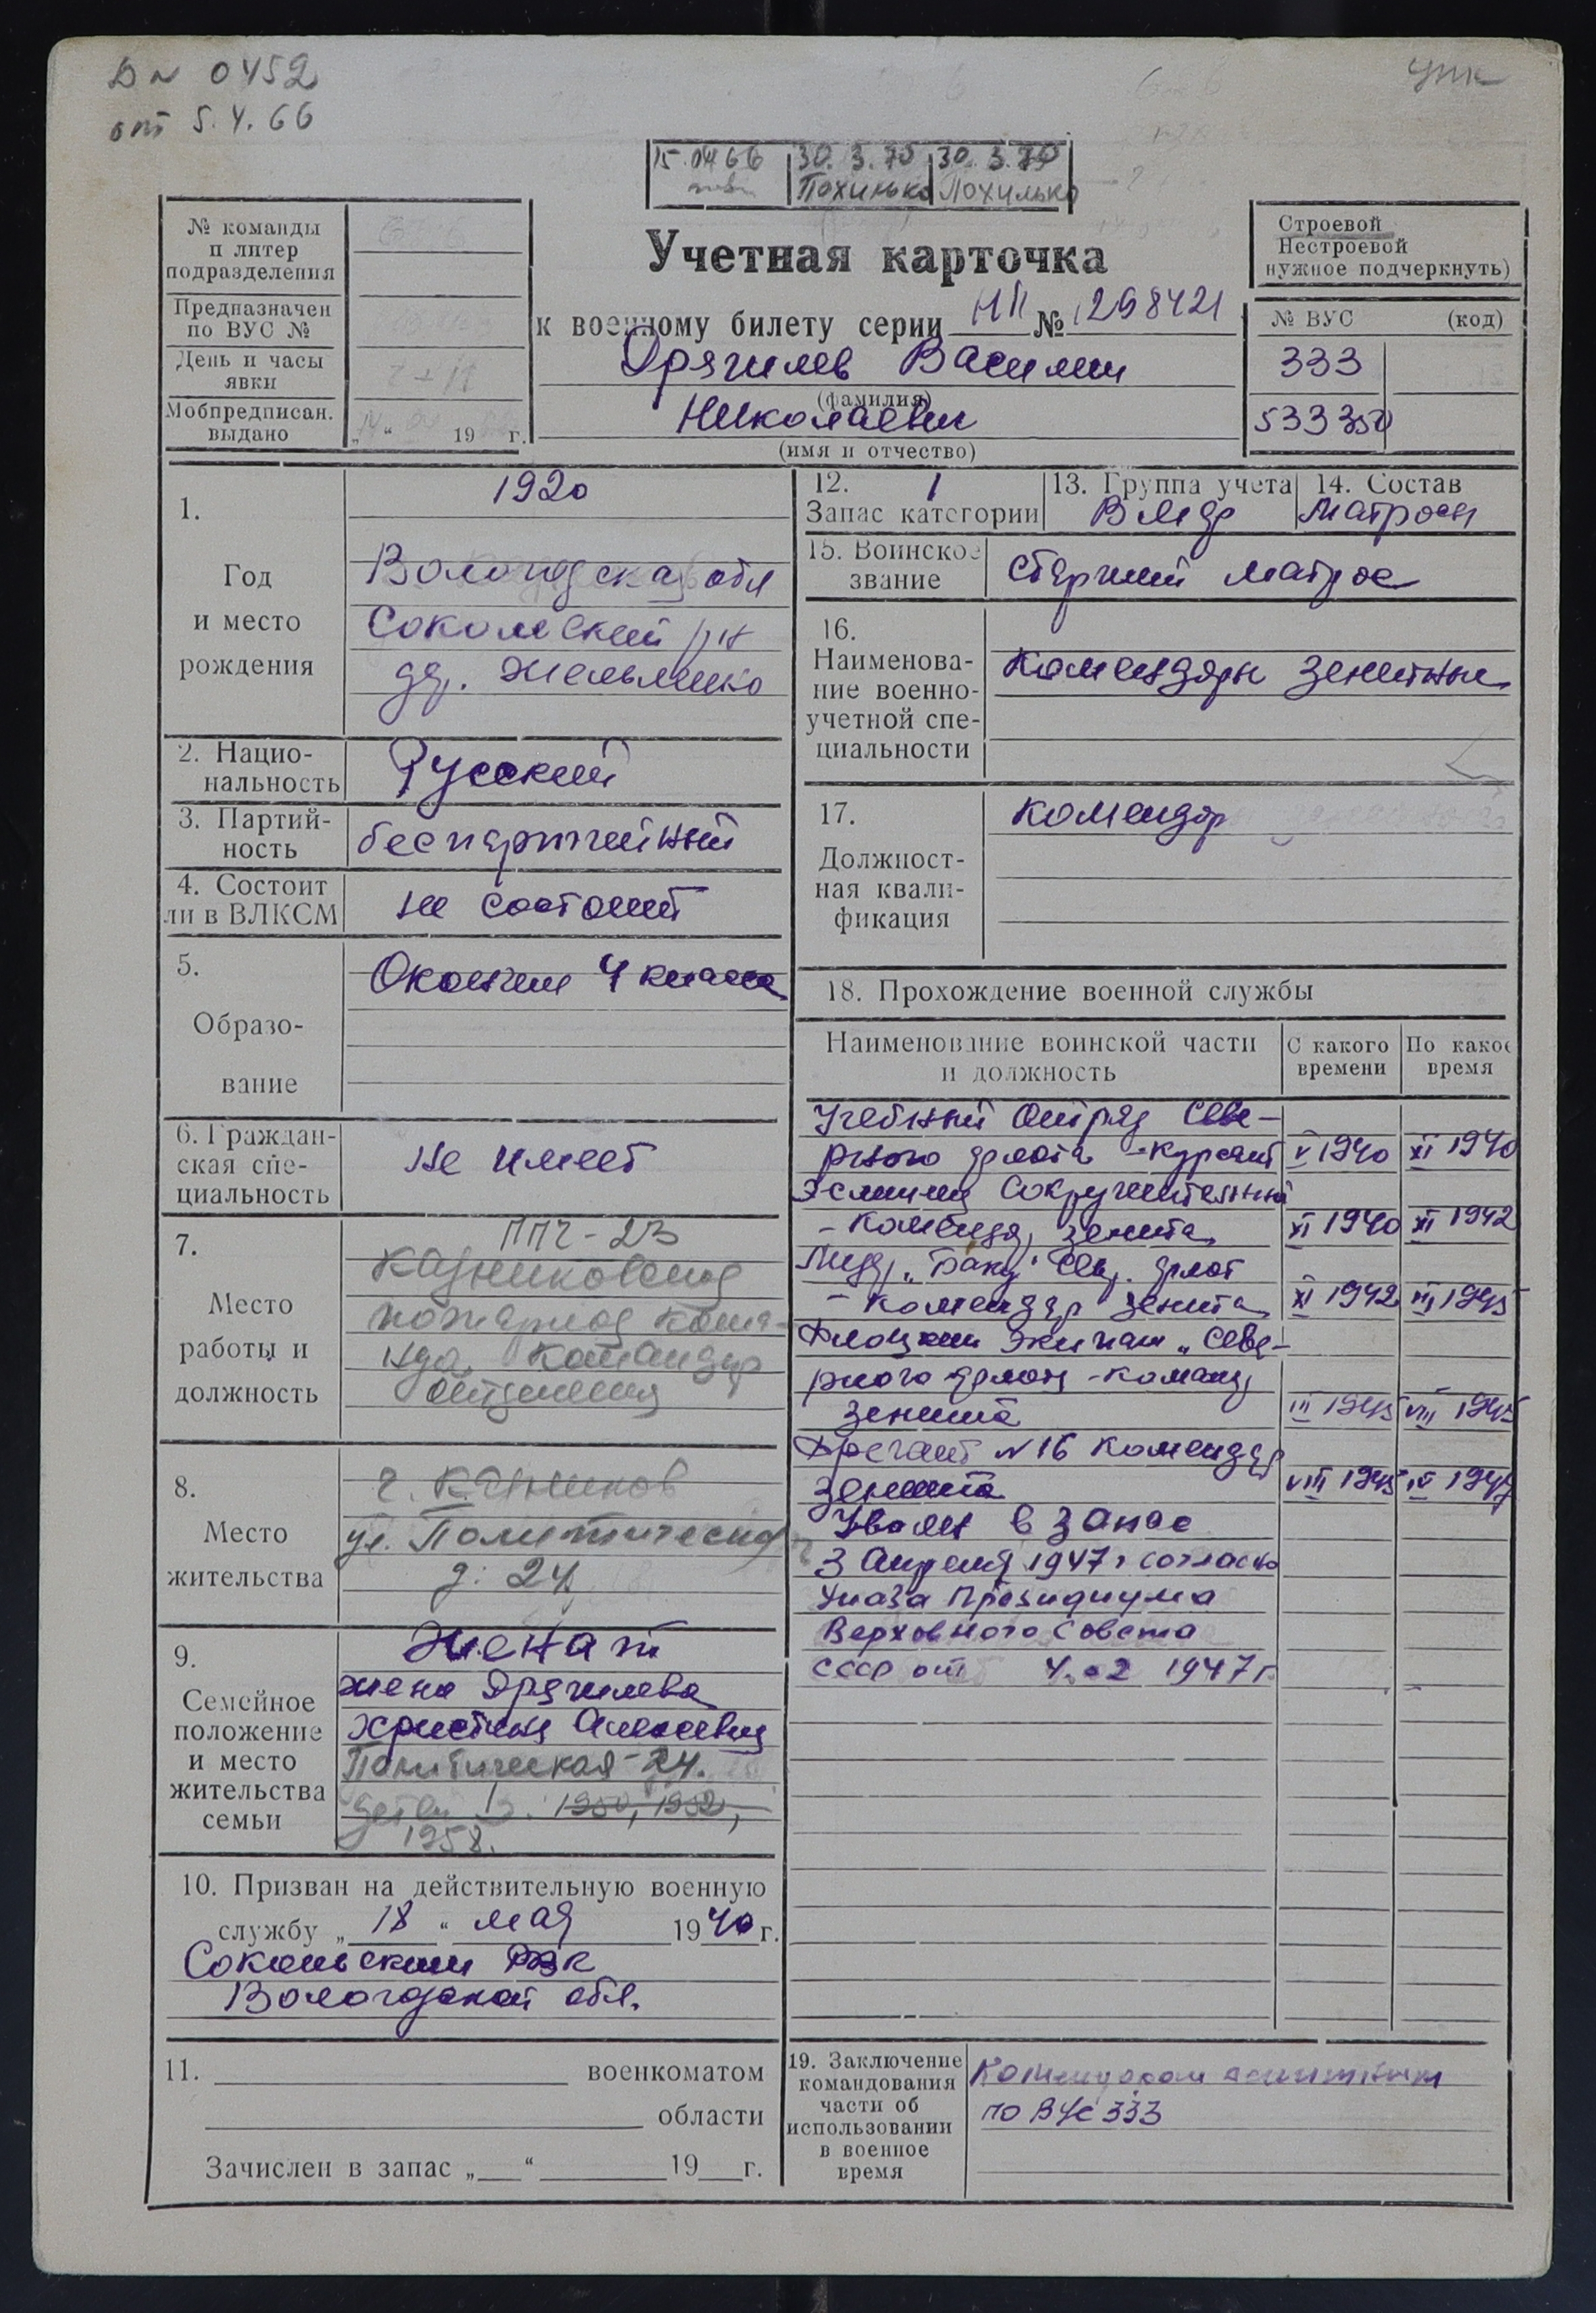 D № 0452
от 5.4.66
УПК
15.04 66 30. 3. 70 30. 3. 70
Похилько Похилько
№ команды
и литер
подразделения
Предназначен
по ВУС №
День и часы
явки
Мобпредписан.
выдано „ “ 19 г.
Учетная карточка
к военному билету серии НП № 1298421
Дрягилев Василий
(фамилия)
Николаевич
(имя и отчество)
Строевой
Нестроевой
нужное подчеркнуть)
№ ВУС (код)
333
533350
1.
Год
и место
рождения
1920
Вологодская обл
Сокольский р-н
2. Нацио-
нальность
Русский
3. Партий-
ность
беспартийный
4. Состоит
ли в ВЛКСМ
не состоит
5.
Образо-
вание
Окончил 4 класса
6. Граждан-
ская спе-
циальность
не имеет
7.
Место
работы и
должность
ППЧ-23
Кадниковская
пожарная кома-
нда. Командир
отделения
8.
Место
жительства
г. Кадников
ул. Политическая
д. 24
9.
Семейное
положение
и место
жительства
семьи
Женат
жена Дрягилева
Христина Алексеевна
Политическая-24.
дети 1950, 1952,
1958.
10. Призван на действительную военную
службу „ 18 “ мая 1940 г.
Сокольским РВК
Вологодской обл.
11. военкоматом
области
Зачислен в запас „ “ 19 г.
12. 1
Запас категории
13. Группа учета
ВМФ
14. Состав
матросы
15. Воинское
звание
Старший матрос
16.
Наименова-
ние военно-
учетной спе-
циальности
Комендоры зенитные
17.
Должност-
ная квали-
фикация
комендор
18. Прохождение военной службы
Наименование воинской части
и должность
С какого
времени
По какое
время
Учебный отряд Севе-
рного флота - курсант V 1940 XI 1940
Эсминец Сокрушительный
- Командор, зенита XI 1940 XI 1942
Лидер „Баку" Сев. флот
- комендор зенита XI 1942 III 1945
Флотский экипаж „Севе-
рного флота - команд
зенита III 1945 VIII 1945
Фрегант №16 комендор
зенита VIII 1945 IV 1947
Уволен в запас
3 Апреля 1947 г согласно
Указа Президиума
Верховного Совета
СССР от 4.02 1947 г.
19. Заключение
командования
части об
использовании
в военное
время
Комендором зенитным
по ВУС 333